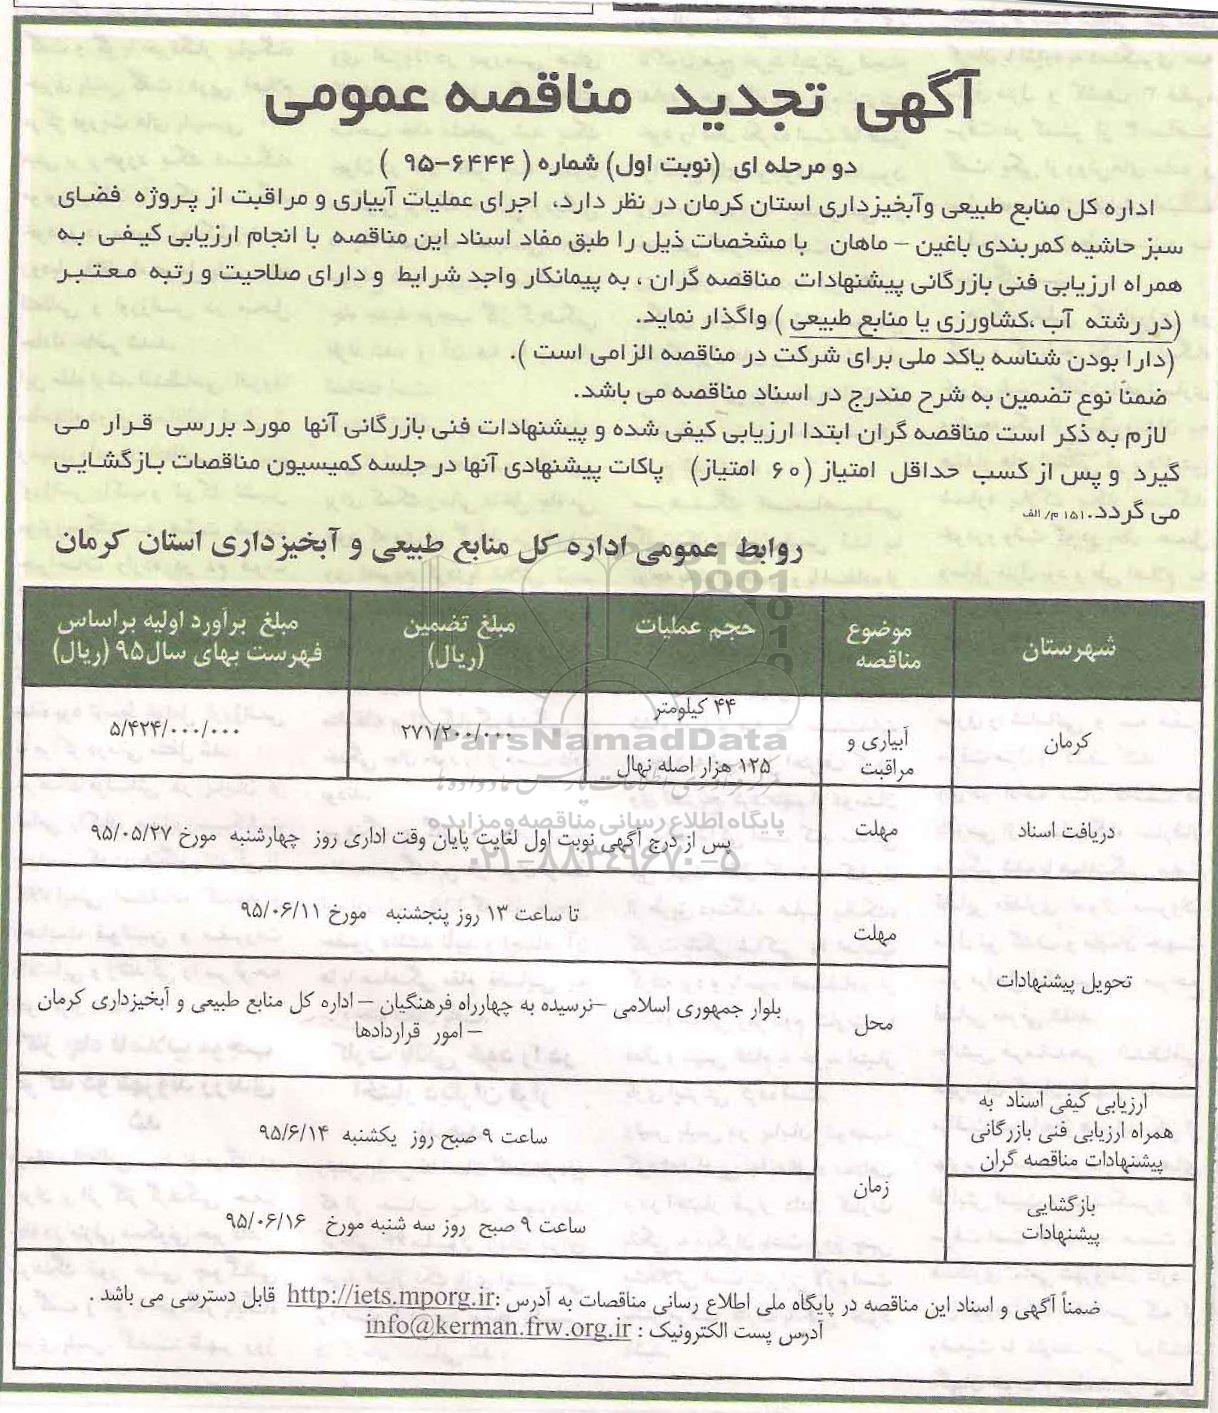 آگهی تجدید مناقصه عمومی
دو مرحله ای (نوبت اول) شماره ( ۶۴۴۴-۹۵ )
اداره کل منابع طبیعی وآبخیزداری استان کرمان در نظر دارد، اجرای عملیات آبیاری و مراقبت از پروژه فضای
سبز حاشیه کمربندی باغین – ماهان با مشخصات ذیل را طبق مفاد اسناد این مناقصه با انجام ارزیابی کیفی به
همراه ارزیابی فنی بازرگانی پیشنهادات مناقصه گران ، به پیمانکار واجد شرایط و دارای صلاحیت و رتبه معتبر
(در رشته آب ،کشاورزی یا منابع طبیعی ) واگذار نماید.
(دارا بودن شناسه یاکد ملی برای شرکت در مناقصه الزامی است ).
ضمناً نوع تضمین به شرح مندرج در اسناد مناقصه می باشد.
لازم به ذکر است مناقصه گران ابتدا ارزیابی کیفی شده و پیشنهادات فنی بازرگانی آنها مورد بررسی قرار می
گیرد و پس از کسب حداقل امتیاز (۶۰ امتیاز) پاکات پیشنهادی آنها در جلسه کمیسیون مناقصات بازگشایی
می گردد. ۱۵۱ م/ الف
روابط عمومی اداره کل منابع طبیعی و آبخیزداری استان کرمان
شهرستان
موضوع
مناقصه
حجم عملیات
مبلغ تضمین
(ریال)
مبلغ برآورد اولیه براساس
فهرست بهای سال۹۵ (ریال)
کرمان
آبیاری و
مراقبت
۴۴ کیلومتر
۱۲۵ هزار اصله نهال
۲۷۱/۲۰۰/۰۰۰
۵/۴۲۴/۰۰۰/۰۰۰
ParsNamadData
پایگاه اطلاع رسانی مناقصه و مزایده
۰۲۱-۸۸۳۴۹۶۷۰-۵
دریافت اسناد
مهلت
پس از درج آگهی نوبت اول لغایت پایان وقت اداری روز چهارشنبه مورخ ۹۵/۰۵/۲۷
تحویل پیشنهادات
مهلت
تا ساعت ۱۳ روز پنجشنبه مورخ ۹۵/۰۶/۱۱
محل
بلوار جمهوری اسلامی –نرسیده به چهارراه فرهنگیان – اداره کل منابع طبیعی و آبخیزداری کرمان
– امور قراردادها
ارزیابی کیفی اسناد به
همراه ارزیابی فنی بازرگانی
پیشنهادات مناقصه گران
زمان
ساعت ۹ صبح روز یکشنبه ۹۵/۶/۱۴
بازگشایی
پیشنهادات
ساعت ۹ صبح روز سه شنبه مورخ ۹۵/۰۶/۱۶
ضمناً آگهی و اسناد این مناقصه در پایگاه ملی اطلاع رسانی مناقصات به آدرس :http://iets.mporg.ir قابل دسترسی می باشد .
آدرس پست الکترونیک : info@kerman.frw.org.ir